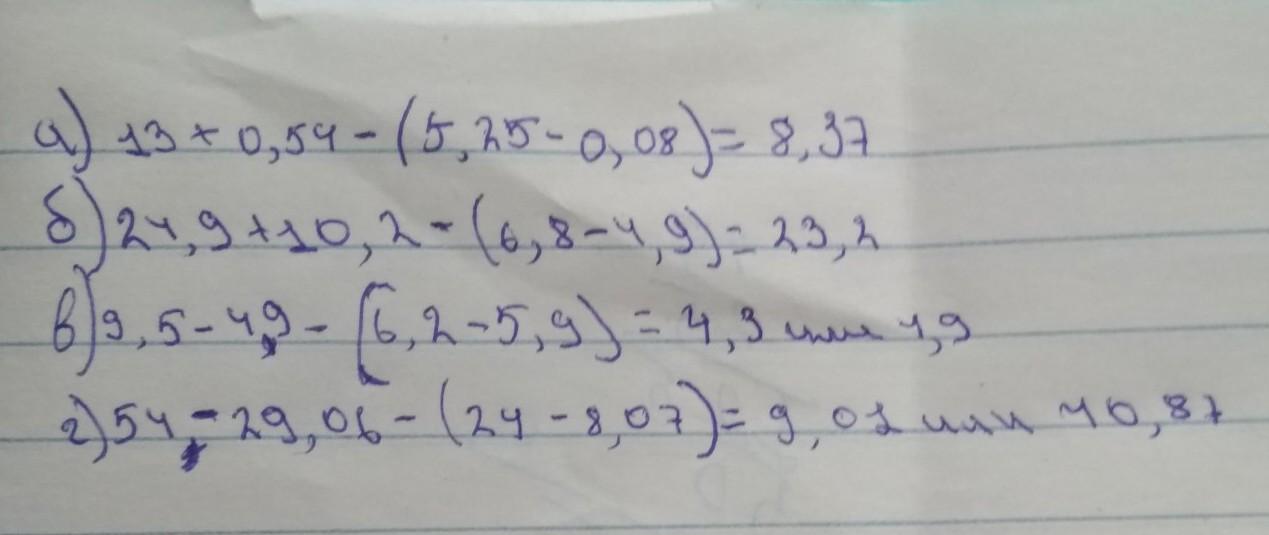 а) 13 + 0,54 - (5,25 - 0,08) = 8,37
б) 24,9 + 10,2 - (6,8 - 4,9) = 23,2
в) 9,5 - 4,9 - (6,2 - 5,9) = 4,3 или 4,9
г) 54 - 29,06 - (24 - 8,07) = 9,01 или 40,87